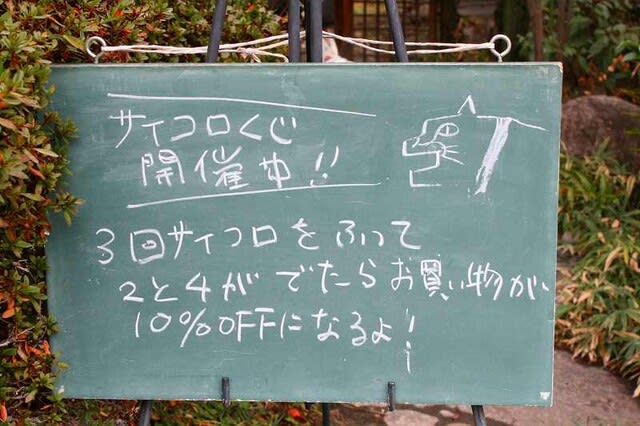 サイコロくじ
開催中!!
3回サイコロをふって
2と4がでたらお買い物が
10%OFFになるよ!